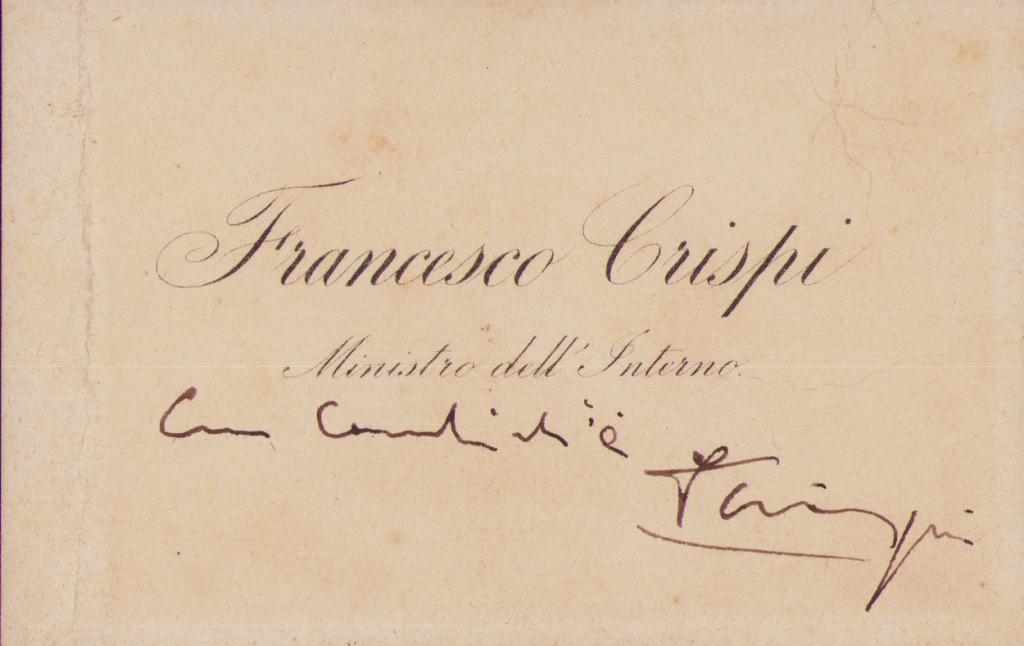 Francesco Crispi
Ministro dell'Interno.
Con cordialità
F Crispi